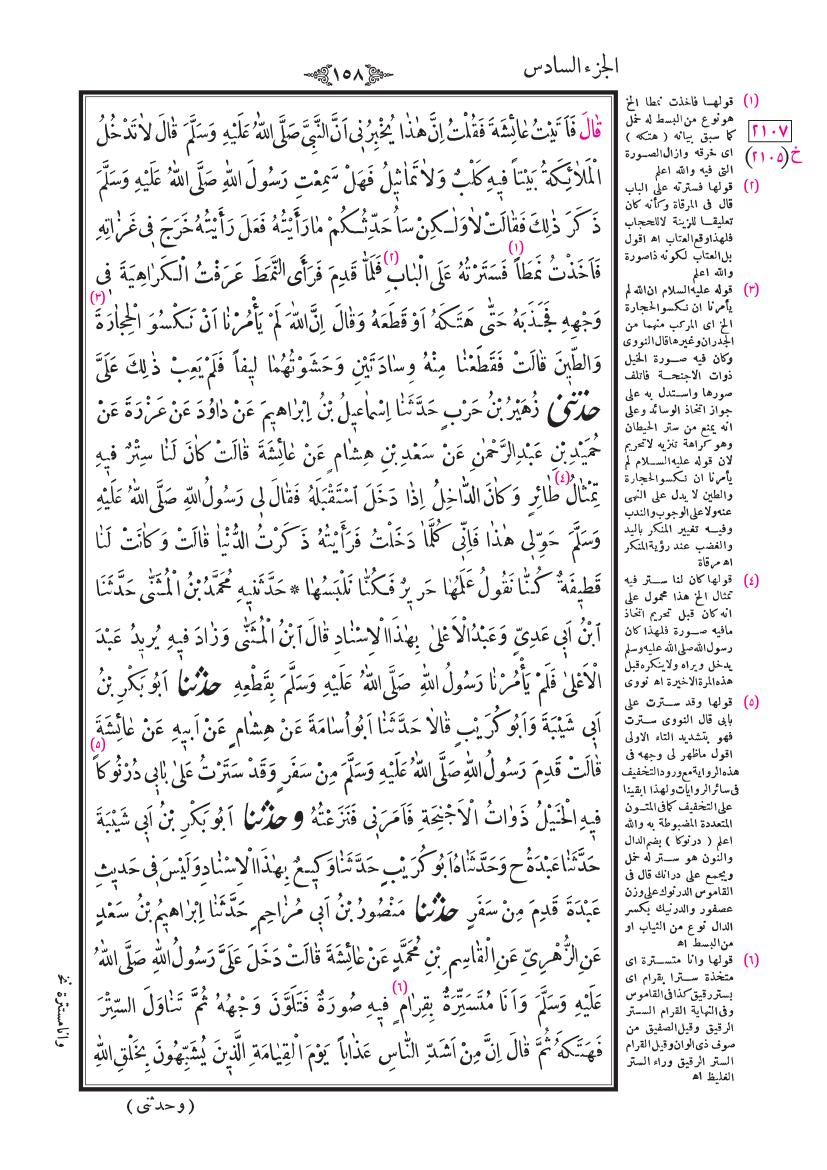 الجزء السادس
١٥٨
قال فاتيت عائشة فقلت ان هذا يخبرنى ان النبى صلى الله عليه وسلم قال لا تدخل
الملائكة بيتا فيه كلب ولا تماثيل فهل سمعت رسول الله صلى الله عليه وسلم
ذكر ذلك فقالت لا ولكن سأحدثكم ما رأيته فعل رأيته خرج فى غزاته
فاخذت نمطا (١) فسترته على الباب (٢) فلما قدم فرأى النمط عرفت الكراهية فى
وجهه فجذبه حتى هتكه او قطعه وقال ان الله لم يأمرنا ان نكسو الحجارة (٣)
والطين قالت فقطعنا منه وسادتين وحشوتهما ليفا فلم يعب ذلك على
حدثنى زهير بن حرب حدثنا اسماعيل بن ابراهيم عن داود عن عزرة عن
حميد بن عبد الرحمن عن سعد بن هشام عن عائشة قالت كان لنا ستر فيه
تمثال (٤) طائر وكان الداخل اذا دخل استقبله فقال لى رسول الله صلى الله عليه
وسلم حولى هذا فانى كلما دخلت فرأيته ذكرت الدنيا قالت وكانت لنا
قطيفة كنا نقول علمها حرير فكنا نلبسها * حدثنيه محمد بن المثنى حدثنا
ابن ابى عدى وعبد الاعلى بهذا الاسناد قال ابن المثنى وزاد فيه يريد عبد
الاعلى فلم يأمرنا رسول الله صلى الله عليه وسلم بقطعه حدثنا ابو بكر بن
ابى شيبة وابو كريب قالا حدثنا ابو اسامة عن هشام عن ابيه عن عائشة
قالت قدم رسول الله صلى الله عليه وسلم من سفر وقد سترت على بابى درنوكا (٥)
فيه الخيل ذوات الاجنحة فامرنى فنزعته وحدثنا ابو بكر بن ابى شيبة
حدثنا عبدة ح وحدثناه ابو كريب حدثنا وكيع بهذا الاسناد وليس فى حديث
عبدة قدم من سفر حدثنا منصور بن ابى مزاحم حدثنا ابراهيم بن سعد
عن الزهرى عن القاسم بن محمد عن عائشة قالت دخل على رسول الله صلى الله
عليه وسلم وانا متسترة بقرام (٦) فيه صورة فتلون وجهه ثم تناول الستر
فهتكه ثم قال ان من اشد الناس عذابا يوم القيامة الذين يشبهون بخلق الله
(وحدثنى)
٢١٠٧
خ (٢١٠٥)
(١) قولها فاخذت نمطا الخ
هو نوع من البسط له خمل
كما سبق بيانه (هتكه)
اى خرقه وازال الصورة
التى فيه والله اعلم
(٢) قولها فسترته على الباب
قال فى المرقاة وكأنه كان
تعليقا للزينة لا للحجاب
فلهذا وقع العتاب اه اقول
بل العتاب لكونه ذا صورة
والله اعلم
(٣) قوله عليه السلام ان الله لم
يأمرنا ان نكسو الحجارة
الخ اى المركب منهما من
الجدران وغيرها قال النووى
وكان فيه صورة الخيل
ذوات الاجنحة فاتلف
صورها واستدل به على
جواز اتخاذ الوسائد وعلى
انه يمنع من ستر الحيطان
وهو كراهة تنزيه لا تحريم
لان قوله عليه السلام لم
يأمرنا ان نكسو الحجارة
والطين لا يدل على النهى
عنه ولا على الوجوب والندب
وفيه تغيير المنكر باليد
والغضب عند رؤية المنكر
اه مرقاة
(٤) قولها كان لنا ستر فيه
تمثال الخ هذا محمول على
انه كان قبل تحريم اتخاذ
مافيه صورة فلهذا كان
رسول الله صلى الله عليه وسلم
يدخل ويراه ولا ينكره قبل
هذه المرة الاخيرة اه نووى
(٥) قولها وقد سترت على
بابى قال النووى سترت
فهو بتشديد التاء الاولى
اقول ماظهر لى وجهه فى
هذه الرواية مع ورود التخفيف
فى سائر الروايات ولهذا ابقينا
على التخفيف كما فى المتون
المتعددة المضبوطة به والله
اعلم (درنوكا) بضم الدال
والنون هو ستر له خمل
ويجمع على درانك قال فى
القاموس الدرنوك على وزن
عصفور والدرنيك بكسر
الدال نوع من الثياب او
من البسط اه
(٦) قولها وانا متسترة اى
متخذة سترا بقرام اى
بستر رقيق كذا فى القاموس
وفى النهاية القرام الستر
الرقيق وقيل الصفيق من
صوف ذى الوان وقيل القرام
الستر الرقيق وراء الستر
الغليظ اه
وانا مستترة نخ